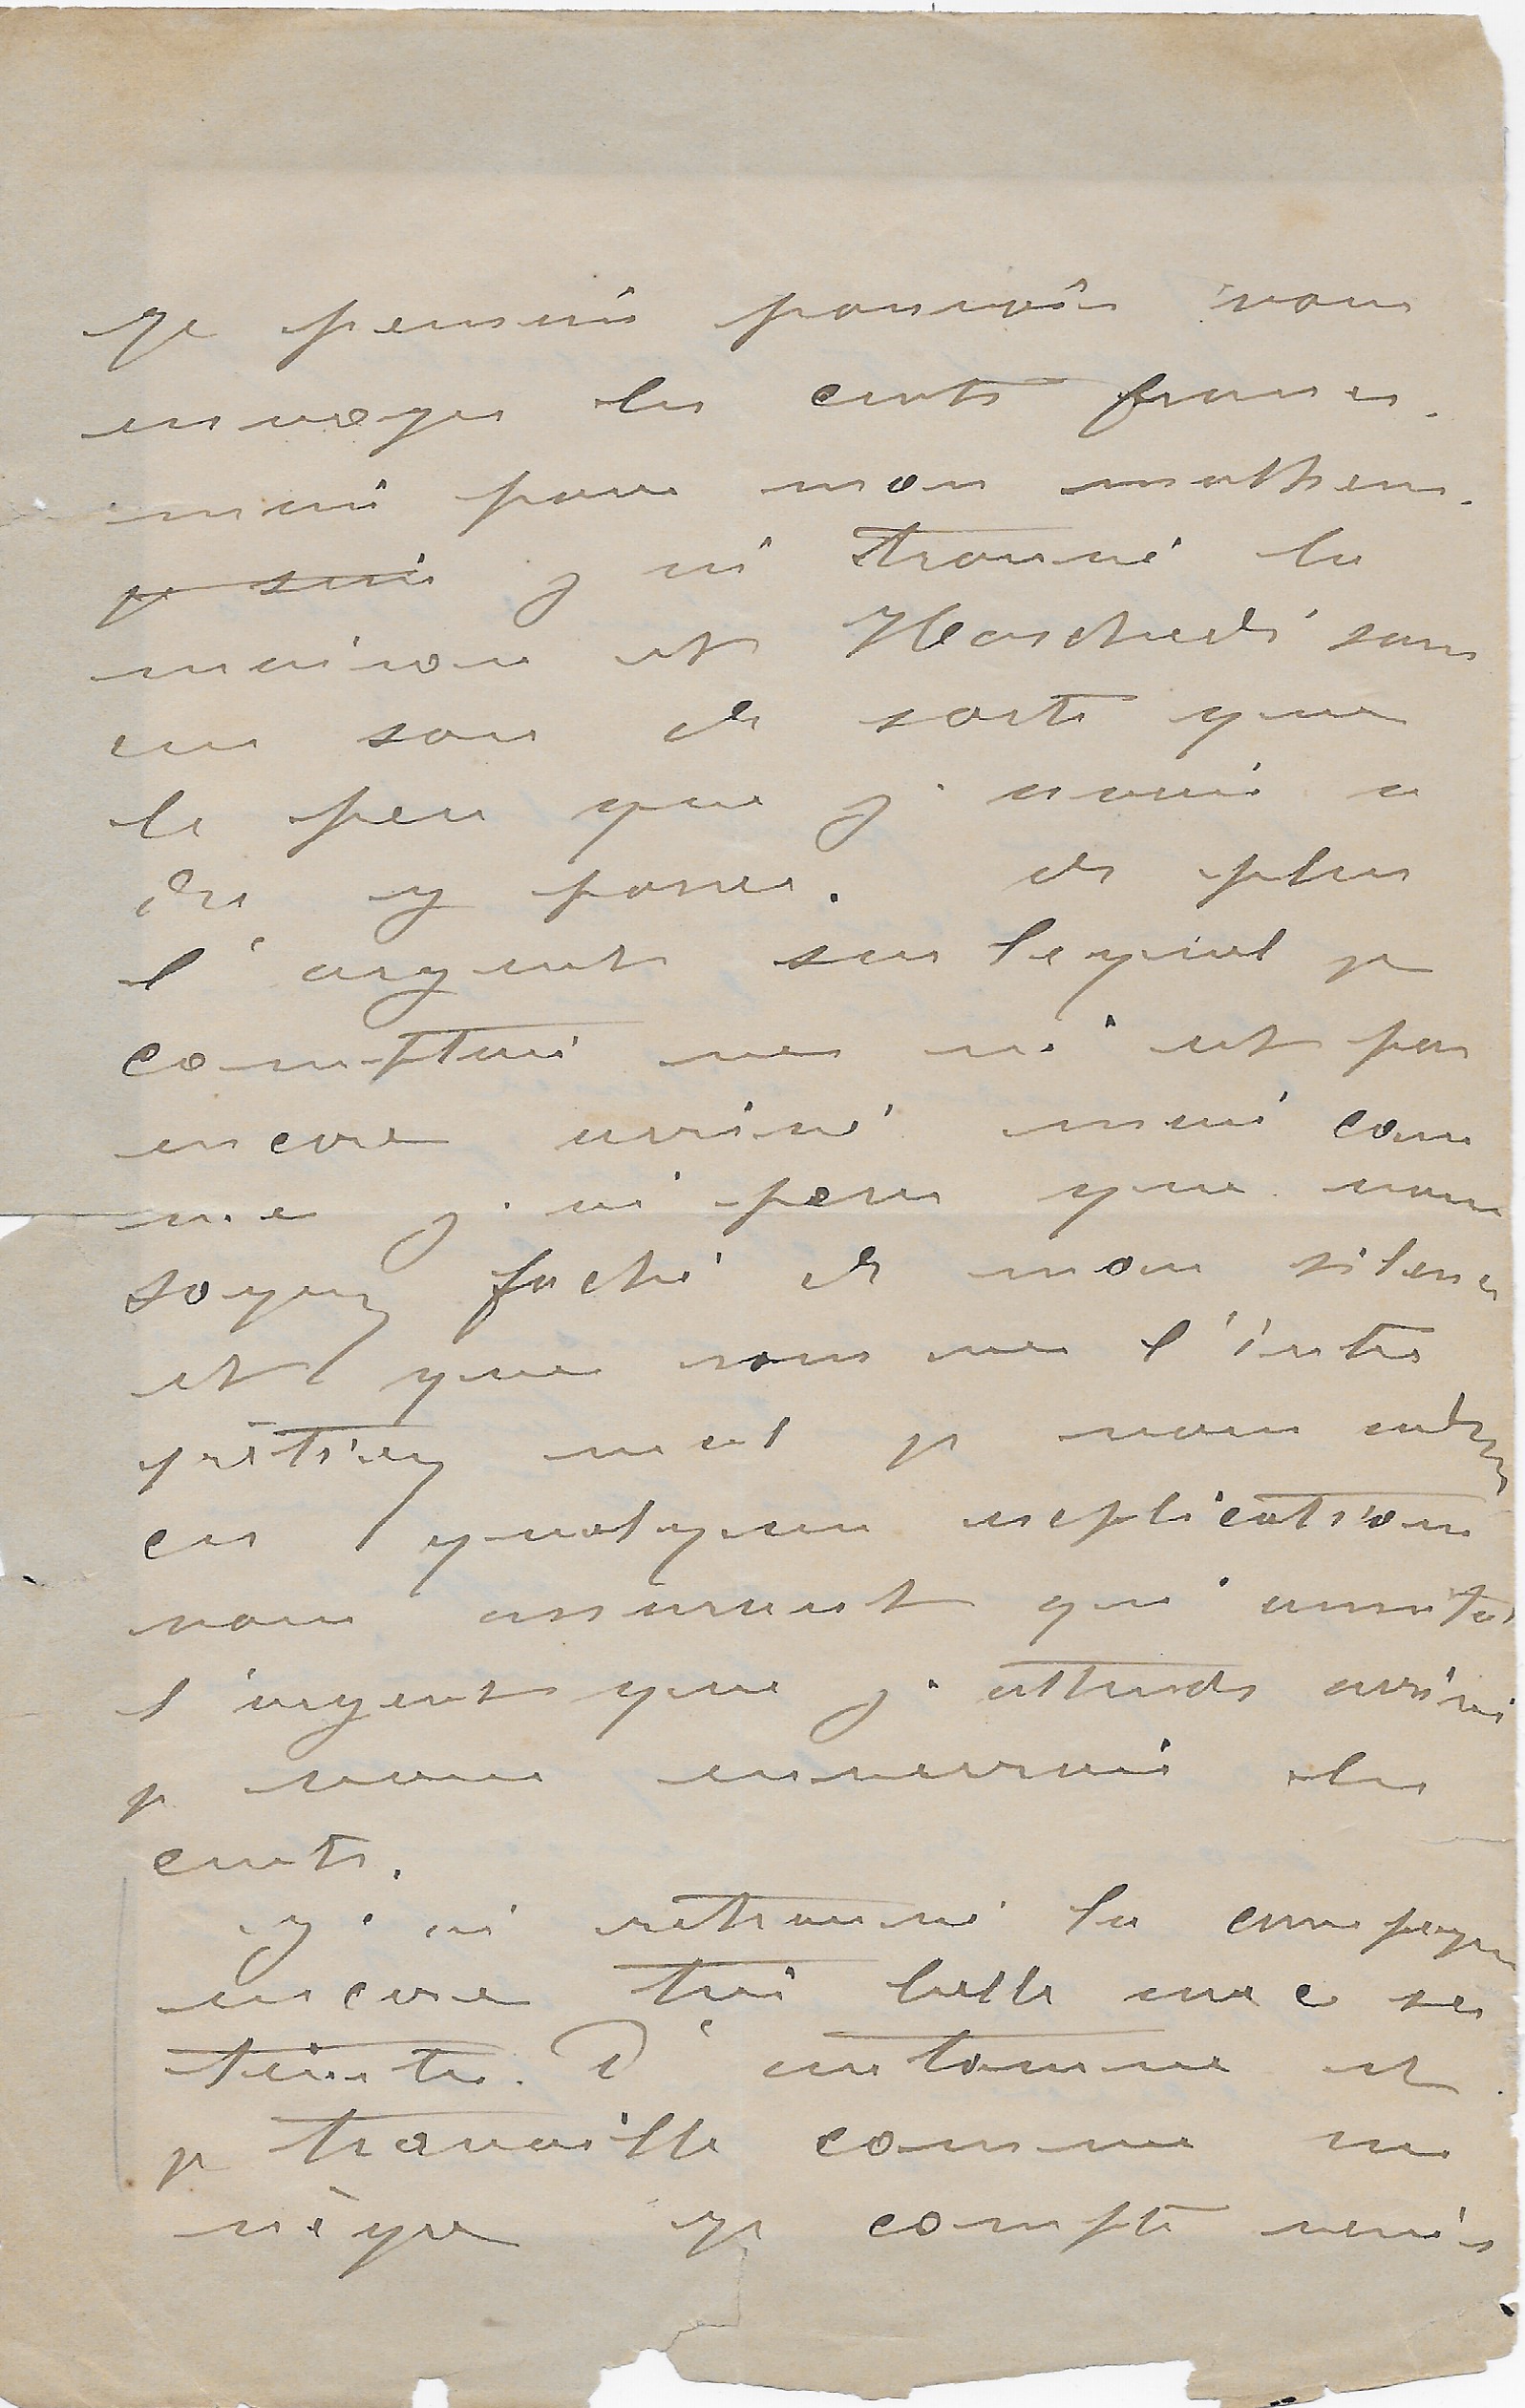 Je pensais pouvoir vous
envoyer les cents francs.
mais pour mon malheur.
je suis j'ai trouvé la
maison et Hoschedé sans
un sou de sorte que
le peu que j'avais a
du y passer. de plus
l'argent sur lequel je
comptais ne m'est pas
encore arrivé mais com
me j'ai peur que vous
soyez faché de mon silence
et que vous ne l'inter
prêtiez mal je vous adresse
ces quelques explications
vous assurant qu'aussitot
l'argent que j'attends arrivé
je vous enverrai les
cents.
J'ai retrouvé la campagne
encore très belle avec ses
teintes d'automne et
je travaille comme un
nègre je compte venir